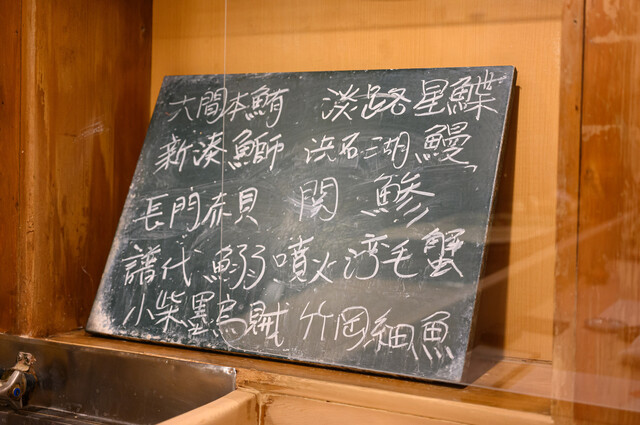 大間本鮪 淡路星鰈
新湊鰤 浜名湖鰻
長門赤貝 関鯵
譜代鰯 噴火湾毛蟹
小柴墨烏賊 竹岡細魚